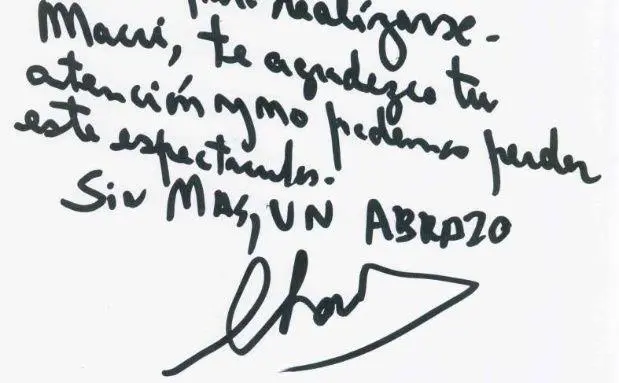 para realizarse.
Macri, te agradezco tu
atención y no podemos perder
este espectaculo.
Sin MAS, UN ABRAZO
Char